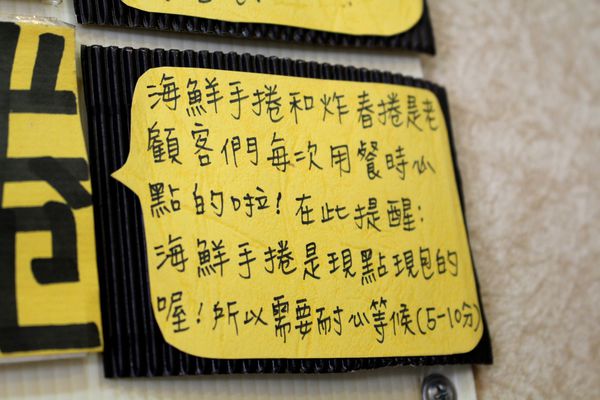 海鮮手捲和炸春捲是老
顧客們每次用餐時必
點的啦!在此提醒:
海鮮手捲是現點現包的
喔!所以需要耐心等候(5-10分)